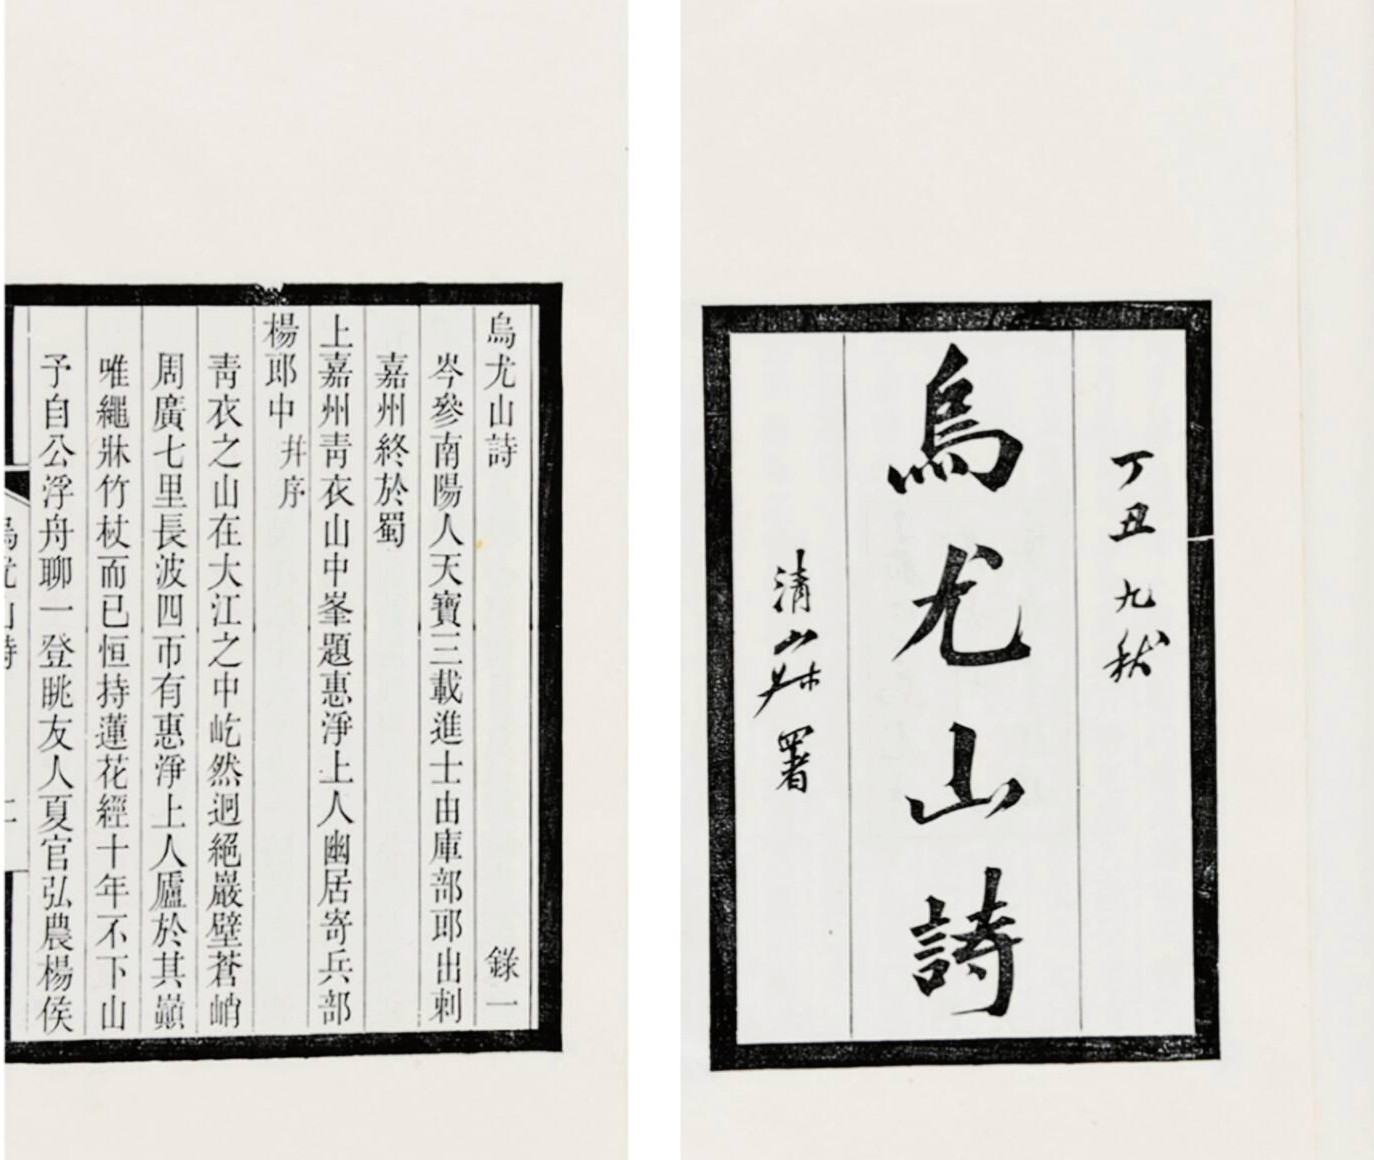 丁丑九秋
烏尤山詩
署
烏尤山詩 錄一
岑參南陽人天寶三載進士由庫部郎出刺
嘉州終於蜀
上嘉州靑衣山中峯題惠淨上人幽居寄兵部
楊郎中幷序
靑衣之山在大江之中屹然迥絕巖壁蒼峭
周廣七里長波四帀有惠淨上人廬於其巔
唯繩牀竹杖而已恒持蓮花經十年不下山
予自公浮舟聊一登眺友人夏官弘農楊侯
烏尤山詩